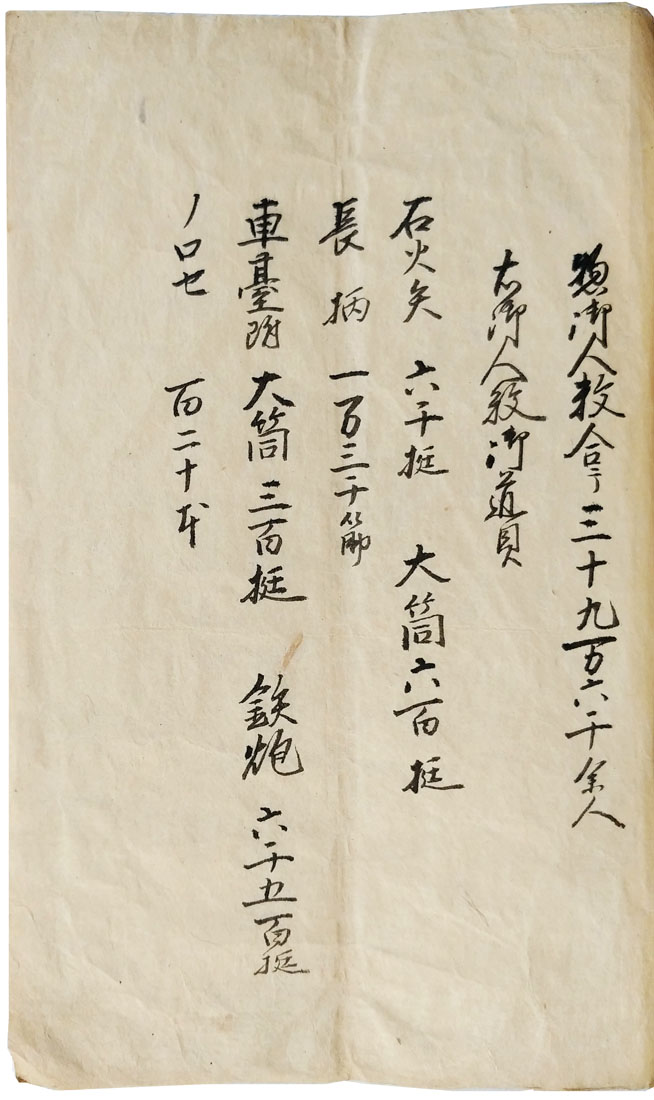 惣御人数合テ三十九万六千余人
右御人数御道具
石火矢 六千挺 大筒六百挺
長柄 一万三千筋
車臺附大筒三百挺 鉄炮 六千五百挺
ノロセ 百二十本